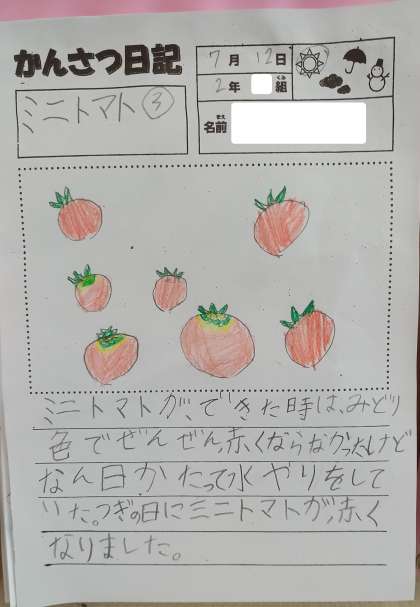 かんさつ日記
7月12日
2年 組
くみ
ミニトマト③
なまえ
名前
ミニトマトが、できた時は、みどり
色でぜんぜん、赤くならなかったけど
なん日かたって水やりをして
いた。つぎの日にミニトマトが、赤く
なりました。